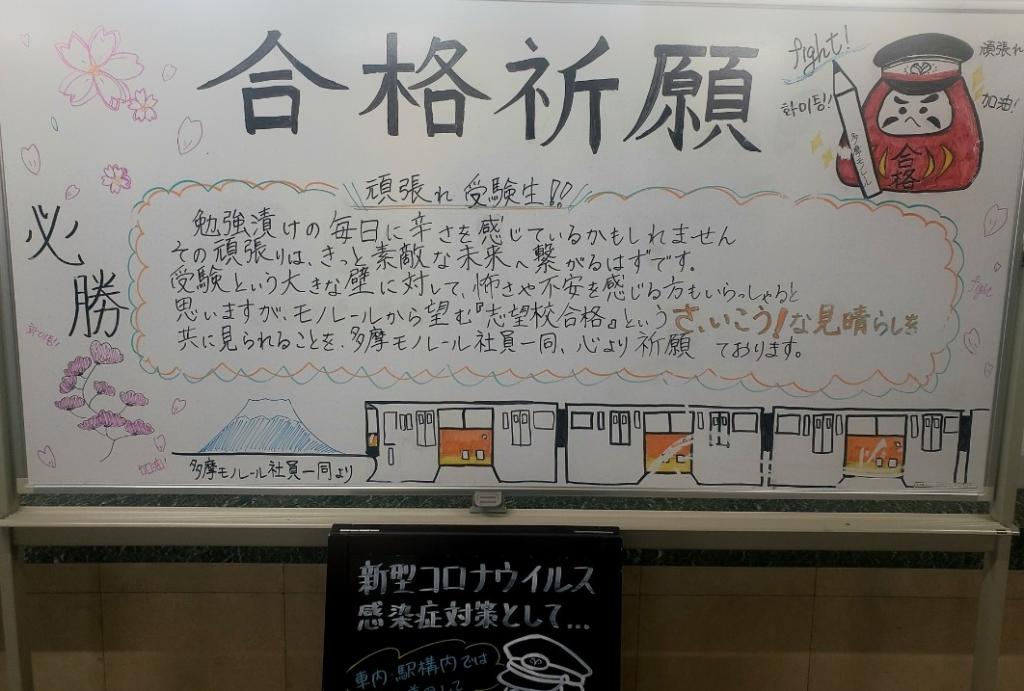 合格祈願
fight!
화이팅!!
頑張れ
加油!
多摩モノレール
合格
必勝
頑張れ 受験生!!
勉強漬けの毎日に辛さを感じているかもしれません
その頑張りは、きっと素敵な未来へ繋がるはずです。
受験という大きな壁に対して、怖さや不安を感じる方もいらっしゃると
思いますが、モノレールから望む『志望校合格』というさいこう!な見晴らしを
共に見られることを、多摩モノレール社員一同、心より祈願 ております。
화이팅!!
fight
加油!
多摩モノレール社員一同より
新型コロナウイルス
感染症対策として...
車内・駅構内では